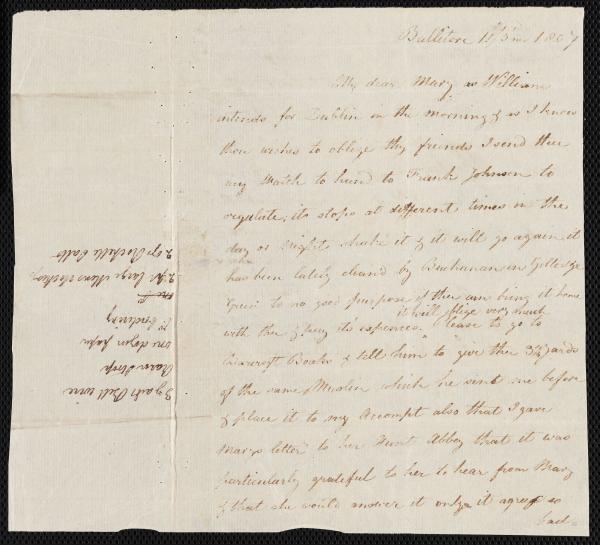 Ballitore 11th 5mo 1807
My dear Mary as William
intends for Dublin in the morning & as I know
thou wishes to oblige thy friends I send thee
my Watch to hand to Frank Johnson to
regulate, its stops at different times in the
day or night shake it & it will go again it
has been lately cleand by Buchanan in
Green to no good purpose if thee can bring it home
it will oblige very much
with thee & pay its expences. Please to go to
Beaks & tell him to give thee 3¾ yards
of the same Muslin which he sent me before
& place it to my Accompt also that I gave
Marys letter to her Aunt Abby that it was
particularly grateful to her to hear from Mary
& that she would answer it only it agrees so
bad
3 yards Bell wire
one dozen
2 pr large
2 oz